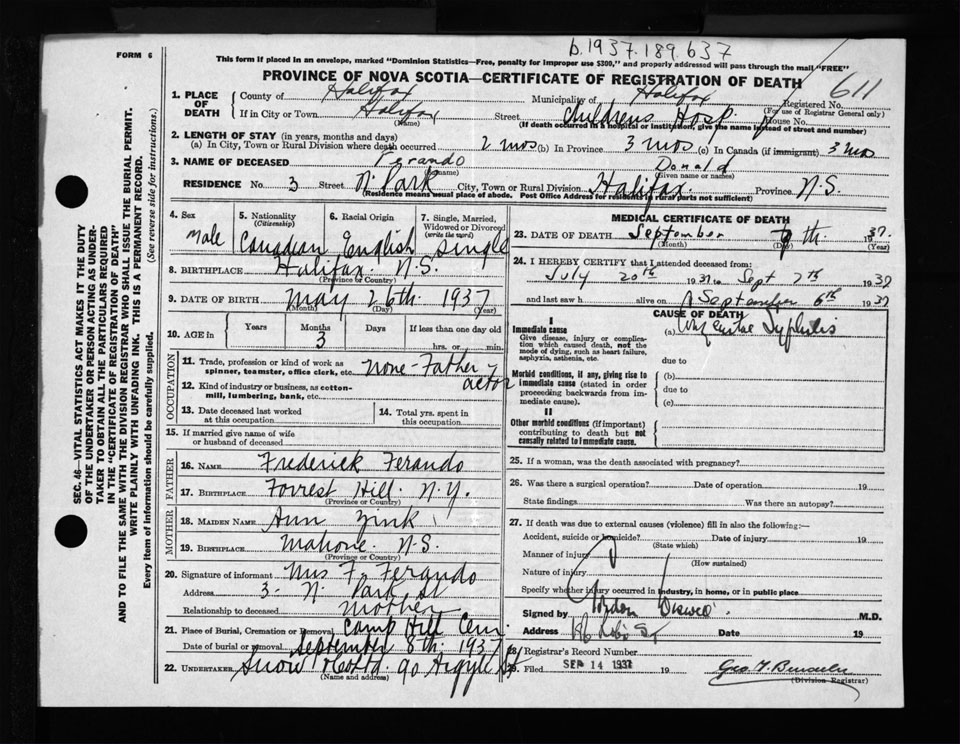 b. 1937. 189. 637
FORM 6
This form if placed in an envelope, marked "Dominion Statistics—Free, penalty for improper use $300," and properly addressed will pass through the mail "FREE"
PROVINCE OF NOVA SCOTIA—CERTIFICATE OF REGISTRATION OF DEATH
611
1. PLACE OF DEATH County of Halifax Municipality of Halifax Registered No. (For use of Registrar General only)
If in City or Town Halifax (Name) Street Childrens Hosp House No.
(If death occurred in a hospital or institution, give the name instead of street and number)
2. LENGTH OF STAY (in years, months and days)
(a) In City, Town or Rural Division where death occurred 2 mos (b) In Province 3 mos (c) In Canada (if immigrant) 3 mos
3. NAME OF DECEASED Ferando Donald
(Given name or names)
RESIDENCE No. 3 Street N. Park City, Town or Rural Division Halifax. Province N.S.
(Residence means usual place of abode. Post Office Address for residents in rural parts not sufficient)
4. Sex Male
5. Nationality (Citizenship) Canadian
6. Racial Origin English
7. Single, Married, Widowed or Divorced (write the word) Single
8. BIRTHPLACE Halifax. N.S.
(Province or Country)
9. DATE OF BIRTH May 26th. 1937
(Month) (Day) (Year)
10. AGE in Years Months 3 Days If less than one day old hrs. or min.
OCCUPATION
11. Trade, profession or kind of work as spinner, teamster, office clerk, etc. None - Father - actor
12. Kind of industry or business, as cotton-mill, lumbering, bank, etc.
13. Date deceased last worked at this occupation
14. Total yrs. spent in this occupation
15. If married give name of wife or husband of deceased
FATHER
16. NAME Frederick Ferando
17. BIRTHPLACE Forrest Hill. N.Y.
(Province or Country)
MOTHER
18. MAIDEN NAME Ann Zink
19. BIRTHPLACE Mahone N.S.
(Province or Country)
20. Signature of informant Mrs F. Ferando
Address 3. N. Park St
Relationship to deceased mother
21. Place of Burial, Cremation or Removal Camp Hill Cem.
Date of burial or removal September 8th. 1937
22. UNDERTAKER Snow 90 Argyle St
(Name and address)
MEDICAL CERTIFICATE OF DEATH
23. DATE OF DEATH September 7th. 1937.
(Month) (Day)
24. I HEREBY CERTIFY that I attended deceased from:
July 20th 1937 to Sept 7th 1937
and last saw h alive on September 6th 1937
CAUSE OF DEATH
I
Immediate cause
Give disease, injury or complication which caused death, not the mode of dying, such as heart failure, asphyxia, asthenia, etc.
(a) Syphilis
due to
Morbid conditions, if any, giving rise to immediate cause (stated in order proceeding backwards from immediate cause).
(b)
due to
(c)
II
Other morbid conditions (if important) contributing to death but not causally related to immediate cause.
25. If a woman, was the death associated with pregnancy?
26. Was there a surgical operation? Date of operation 19
State findings Was there an autopsy?
27. If death was due to external causes (violence) fill in also the following:—
Accident, suicide or homicide? Date of injury 19
(State which)
Manner of injury
(How sustained)
Nature of injury
Specify whether injury occurred in industry, in home, or in public place
Signed by Gordon M.D.
Address Date 19
28. Registrar's Record Number
29. Filed SEP 14 1937 19
(Division Registrar)
SEC. 46—VITAL STATISTICS ACT MAKES IT THE DUTY
OF THE UNDERTAKER OR PERSON ACTING AS UNDERTAKER TO OBTAIN ALL THE PARTICULARS REQUIRED
IN THE "CERTIFICATE OF REGISTRATION OF DEATH"
AND TO FILE THE SAME WITH THE DIVISION REGISTRAR WHO SHALL ISSUE THE BURIAL PERMIT.
WRITE PLAINLY WITH UNFADING INK. THIS IS A PERMANENT RECORD.
Every item of information should be carefully supplied. (See reverse side for instructions.)